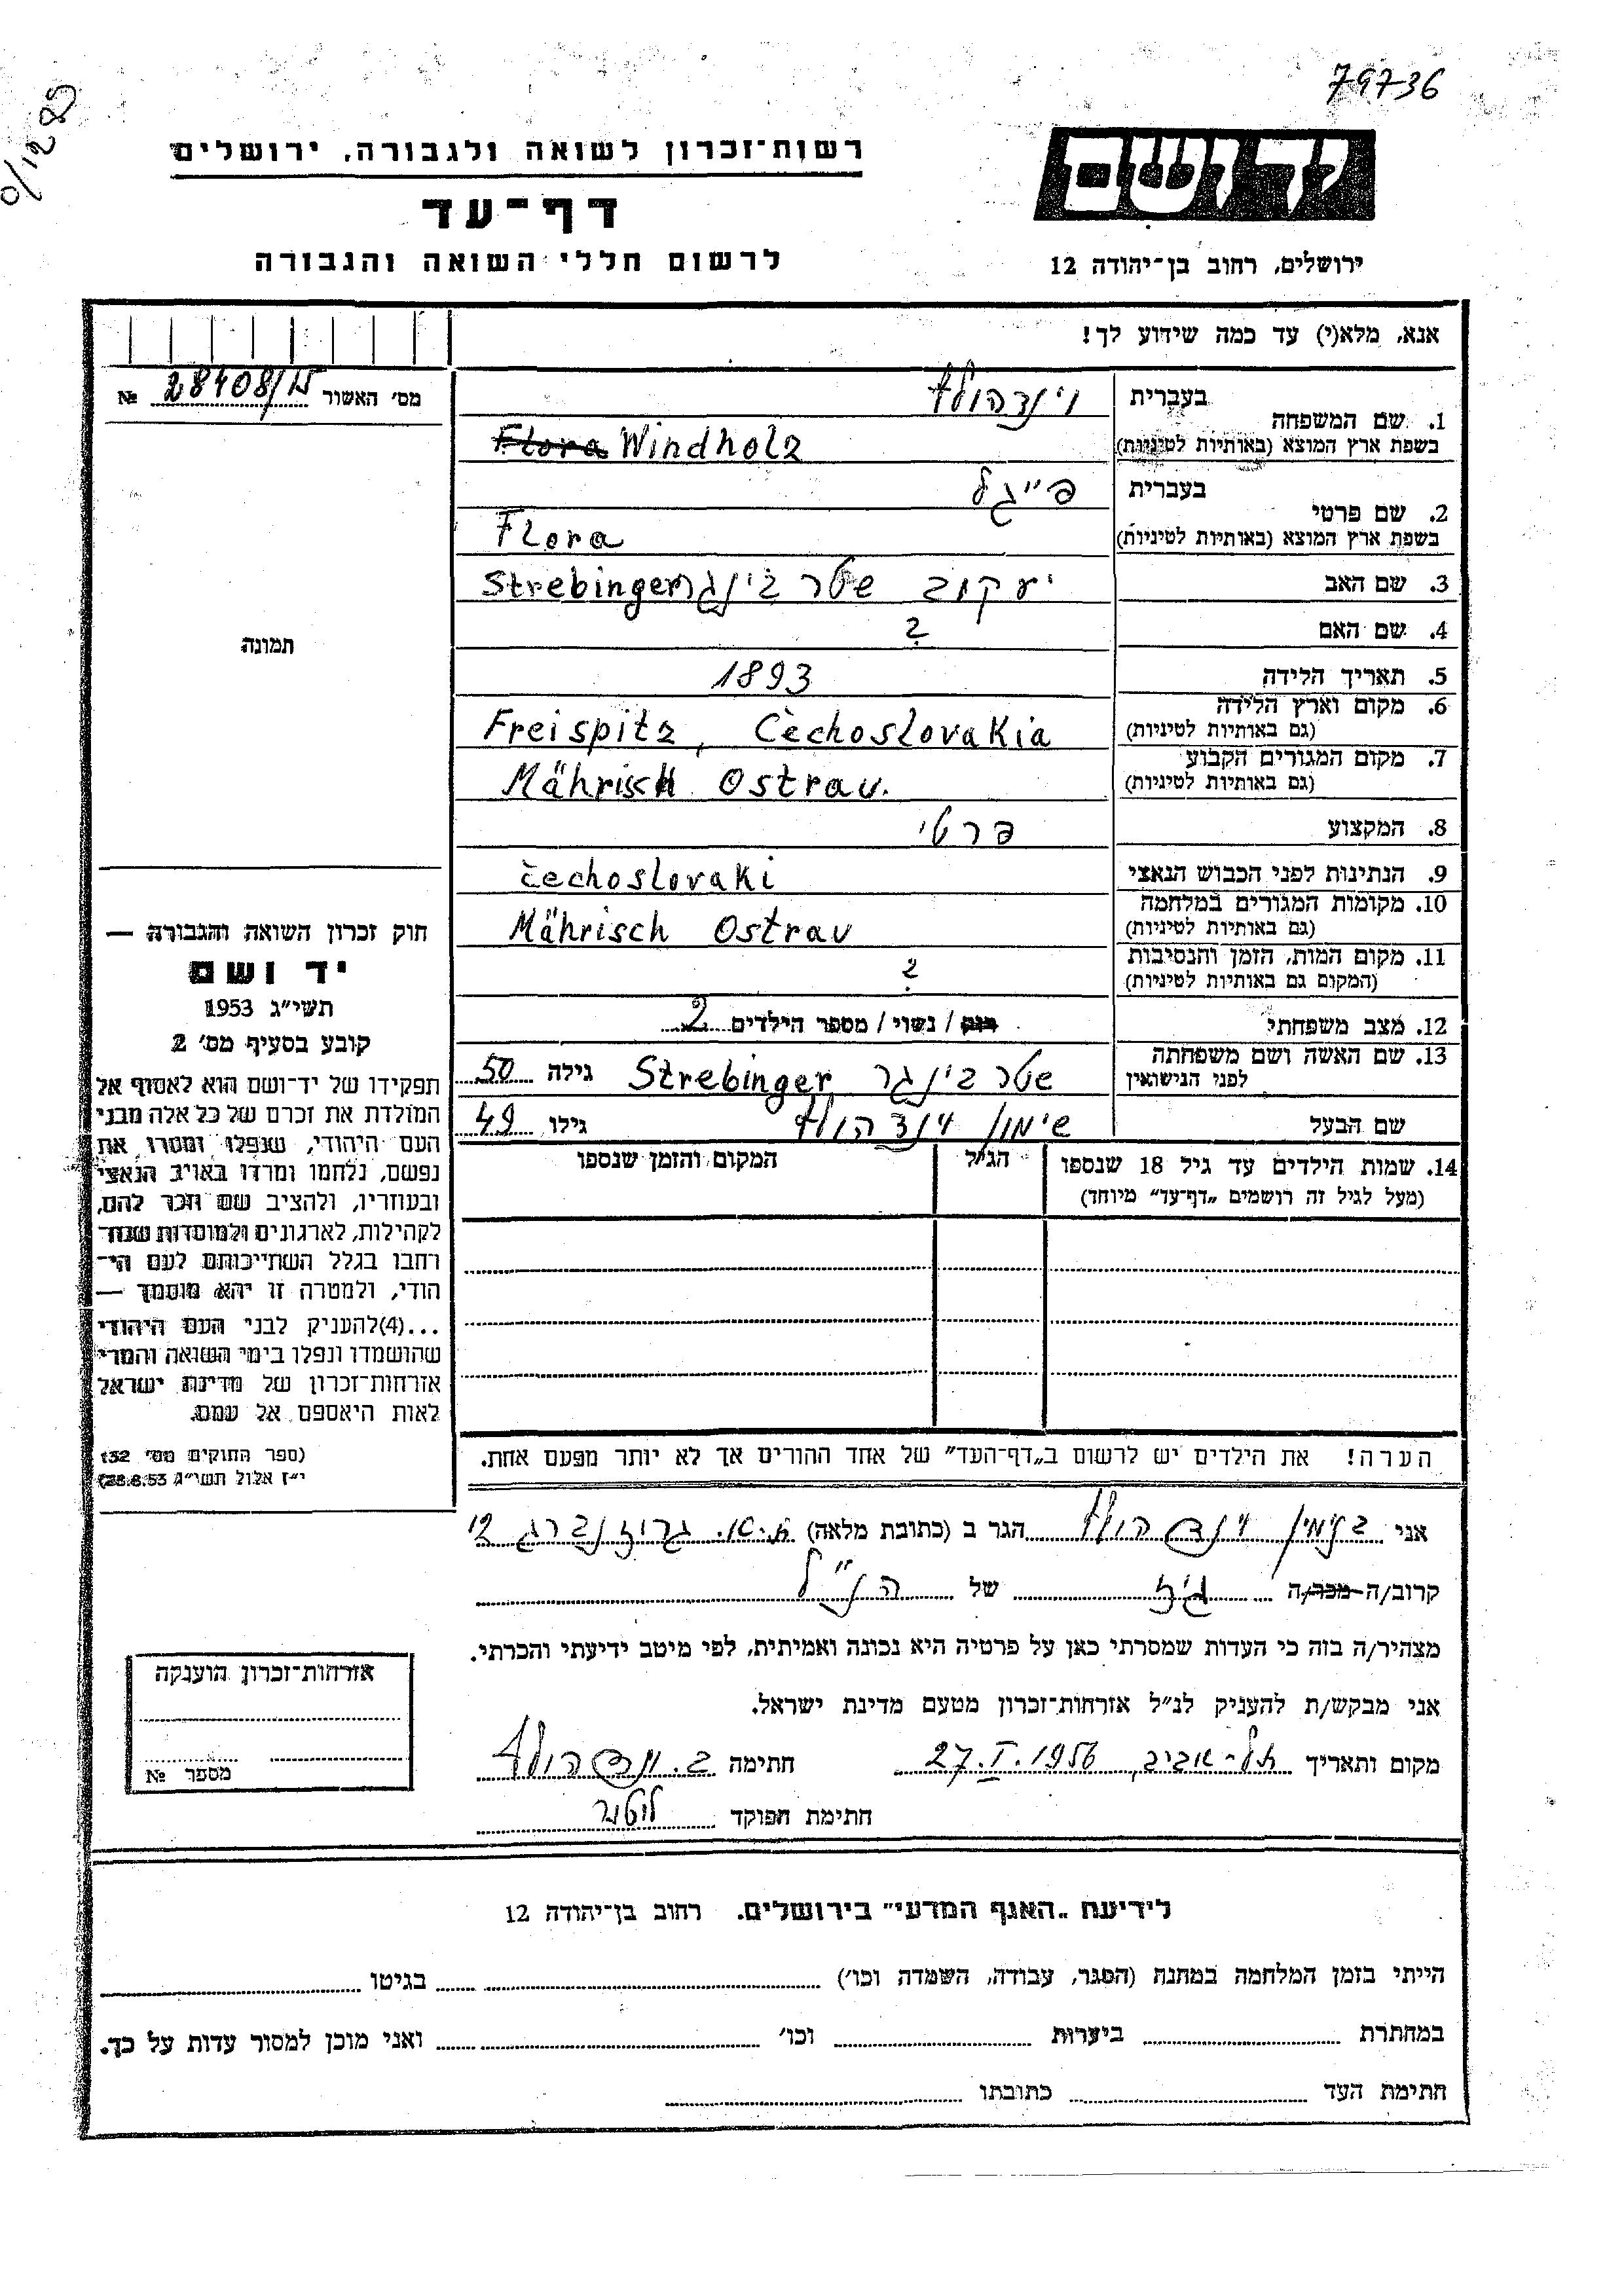 79736
רשות־זכרון לשואה ולגבורה, ירושלים
יד ושם
דף־עד
לרשום חללי השואה והגבורה
ירושלים, רחוב בן־יהודה 12
אנא, מלא(י) עד כמה שידוע לך!
מס' האשור № 28408/
1. שם המשפחה
בעברית וינדהולץ
בשפת ארץ המוצא (באותיות לטיניות) Flora Windholz
2. שם פרטי
בעברית פייגל
בשפת ארץ המוצא (באותיות לטיניות) Flora
3. שם האב יעקוב שטרבינגר Strebinger
4. שם האם ?
5. תאריך הלידה 1893
6. מקום וארץ הלידה
(גם באותיות לטיניות) Freispitz, Čechoslovakia
7. מקום המגורים הקבוע
(גם באותיות לטיניות) Mährisch Ostrau.
8. המקצוע פרטי
9. הנתינות לפני הכבוש הנאצי čechoslovaki
10. מקומות המגורים במלחמה
(גם באותיות לטיניות) Mährisch Ostrau
11. מקום המות, הזמן והנסיבות
(המקום גם באותיות לטיניות) ?
12. מצב משפחתי רווק / נשוי / מספר הילדים 2
13. שם האשה ושם משפחתה
לפני הנישואין שטרבינגר Strebinger גילה 50
שם הבעל שימון וינדהולץ גילו 49
14. שמות הילדים עד גיל 18 שנספו
(מעל לגיל זה רושמים „דף־עד” מיוחד)
הגיל
המקום והזמן שנספו
הערה! את הילדים יש לרשום ב„דף־העד” של אחד ההורים אך לא יותר מפעם אחת.
תמונה
חוק זכרון השואה והגבורה —
יד ושם
תשי״ג 1953
קובע בסעיף מס' 2
תפקידו של יד־ושם הוא לאסוף אל
המולדת את זכרם של כל אלה מבני
העם היהודי, שנפלו ומסרו את
נפשם, נלחמו ומרדו באויב הנאצי
ובעוזריו, ולהציב שם וזכר להם,
לקהילות, לארגונים ולמוסדות שנח־
רחבו בגלל השתייכותם לעם הי־
הודי, ולמטרה זו יהא מוסמך —
...(4)להעניק לבני העם היהודי
שהושמדו ונפלו בימי השואה והמרי
אזרחות־זכרון של מדינת ישראל
לאות היאספם אל עמם.
(ספר החוקים מס' 132
י״ז אלול תשי״ג 28.8.53)
אני בנימין וינדהולץ הגר ב (כתובת מלאה) ת.א. גרוזנברג 12
קרוב/ה מכר/ה של הנ״ל
מצהיר/ה בזה כי העדות שמסרתי כאן על פרטיה היא נכונה ואמיתית, לפי מיטב ידיעתי והכרתי.
אני מבקש/ת להעניק לנ״ל אזרחות־זכרון מטעם מדינת ישראל.
מקום ותאריך תל-אביב, 27.I.1956 חתימה ב. וינדהולץ
חתימת הפוקד
אזרחות־זכרון הוענקה
מספר №
לידיעת „האגף המדעי” בירושלים. רחוב בן־יהודה 12
הייתי בזמן המלחמה במחנה (הסגר, עבודה, השמדה וכו') בגיטו
במחתרת ביערות וכו' ואני מוכן למסור עדות על כך.
חתימת העד כתובתו